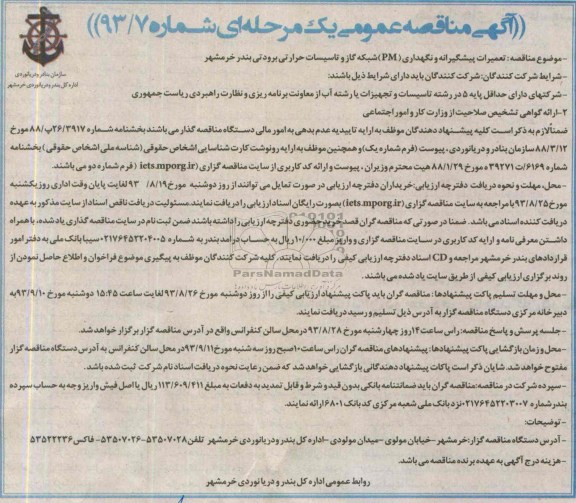 ((آگهی مناقصه عمومی یک مرحله‌ای شماره ۹۳/۷))
سازمان بنادر و دریانوردی
اداره کل بندر و دریانوردی خرمشهر
-موضوع مناقصه : تعمیرات پیشگیرانه و نگهداری (PM) شبکه گاز و تاسیسات حرارتی برودتی بندر خرمشهر
-شرایط شرکت کنندگان: شرکت کنندگان باید دارای شرایط ذیل باشند:
-شرکتهای دارای حداقل پایه ۵ در رشته تاسیسات و تجهیزات یا رشته آب از معاونت برنامه ریزی و نظارت راهبردی ریاست جمهوری
۲-ارائه گواهی تشخیص صلاحیت از وزارت کار و امور اجتماعی
ضمنا لازم به ذکر است کلیه پیشنهاد دهندگان موظف به ارایه تاییدیه عدم بدهی به امور مالی دستگاه مناقصه گذار می باشند بخشنامه شماره ۲۶/۳۹۱۷پ/۸۸ مورخ
۸۸/۳/۱۲ سازمان بنادر و دریانوردی ، پیوست (فرم شماره یک) و همچنین موظف به ارایه رونوشت کارت شناسایی اشخاص حقوقی (شناسه ملی اشخاص حقوقی) بخشنامه
شماره ۶۱۶۹/ت ۳۹۲۷۱ه مورخ ۸۸/۱/۲۹ هیت محترم وزیران ، پیوست و ارائه کد کاربری از سایت مناقصه گزاری (iets.mporg.ir) ( فرم شماره دو می باشند.
-محل، مهلت و نحوه دریافت دفترچه ارزیابی:خریداران دفترچه ارزیابی در صورت تمایل می توانند از روز دوشنبه مورخ ۹۳/۸/۱۹ لغایت پایان وقت اداری روز یکشنبه
مورخ ۹۳/۸/۲۵ با مراجعه به سایت مناقصه گزاری (iets.mporg.ir) بصورت رایگان اسناد ارزیابی را دریافت نمایند. مسئولیت دریافت ناقص اسناد از سایت مذکور به عهده
دریافت کننده اسناد می باشد. ضمنا در صورتی که مناقصه گران قصد خرید حضوری دفترچه ارزیابی را داشته باشند ضمن ثبت نام در سایت مناقصه گذاری یاد شده، با همراه
داشتن معرفی نامه و ارایه کد کاربری در سایت مناقصه گزاری و واریز مبلغ ۱۰/۰۰۰ ریال به حساب درآمد بندر به شماره ۲۱۷۶۴۵۳۲۰۴۰۰۵ سیبا بانک ملی به دفتر امور
قراردادهای بندر خرمشهر مراجعه و CD اسناد دفترچه ارزیابی کیفی را دریافت نمایند. کلیه شرکت کنندگان موظف به پیگیری موضوع فراخوان و اطلاع حاصل نمودن از
روند برگزاری ارزیابی کیفی از طریق سایت یاد شده می باشند.
-محل و مهلت تسلیم پاکت پیشنهادها : مناقصه گران باید پاکت پیشنهاد ارزیابی کیفی را از روز دوشنبه مورخ ۹۳/۸/۲۶ لغایت ساعت ۱۵:۴۵ دوشنبه مورخ ۹۳/۹/۱۰ به
دبیرخانه مرکزی دستگاه مناقصه گزار به آدرس ذیل تسلیم و رسید دریافت نمایند.
-جلسه پرسش و پاسخ مناقصه: راس ساعت ۱۴ روز چهارشنبه مورخ ۹۳/۸/۲۸ در محل سالن کنفرانس واقع در آدرس مناقصه گزار برگزار خواهد شد.
-محل و زمان بازگشایی پاکت پیشنهادها: پیشنهادهای مناقصه گران راس ساعت ۱۰ صبح روز سه شنبه مورخ ۹۳/۹/۱۱ در محل سالن کنفرانس به آدرس دستگاه مناقصه گزار
مفتوح خواهد شد. شایان ذکر است پاکات پیشنهاد دهندگانی بازگشایی خواهد شد که ضمن رعایت نحوه دریافت اسناد نام شرکت ثبت شده باشد.
-سپرده شرکت در مناقصه:مناقصه گران باید ضمانتنامه بانکی بدون قید و شرط و قابل تمدید به دفعات به مبلغ ۱۱۳/۶۰۹/۴۱۱ ریال یا اصل فیش واریز وجه به حساب سپرده
بندر شماره ۲۱۷۶۴۵۲۲۰۳۰۰۷ نزد بانک ملی شعبه مرکزی کد بانک ۶۸۰۱ ارائه نمایند.
-توضیحات:
-آدرس دستگاه مناقصه گزار:خرمشهر -خیابان مولوی -میدان مولودی -اداره کل بندر و دریانوردی خرمشهر تلفن ۵۳۵۰۷۰۲۸-۵۳۵۰۷۰۲۶ - فاکس ۵۳۵۲۲۲۳۶
-هزینه درج آگهی به عهده برنده مناقصه می باشد.
روابط عمومی اداره کل بندر و دریانوردی خرمشهر
ParsNamadData